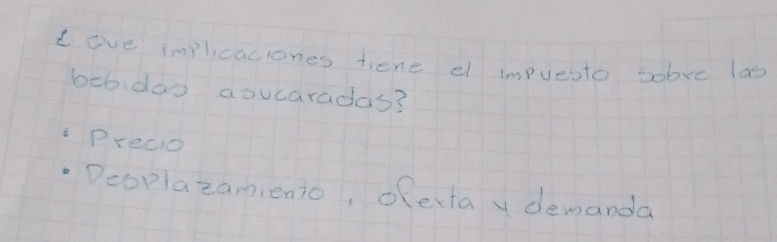 ¿ Que implicaciones tiene el impuesto sobre las
bebidas asucaradas?
• Precio
• Desplazamiento, oferta y demanda